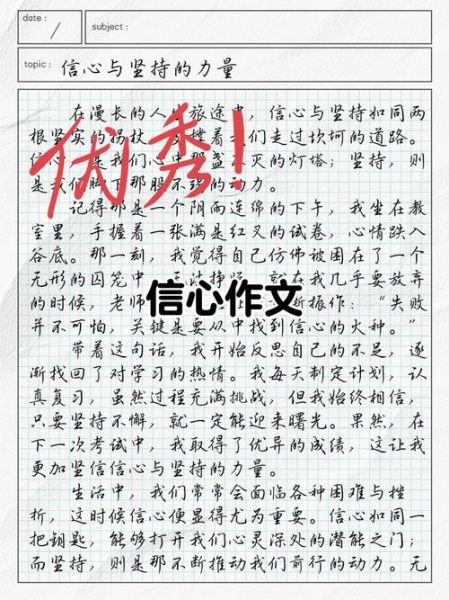 date:
subject:
topic: 信心与坚持的力量
在漫长的人生旅途中，信心与坚持如同两
根坚实的拐杖，支撑着我们走过坎坷的道路。
信心，是我们心中那盏不灭的灯塔；坚持，则
是我们脚下那股不强的动力。
优秀！
记得那是一个阴雨连绵的下午，我坐在教
室里，手握着一张满是红叉的试卷，心情跌入
谷底。那一刻，我觉得自己仿佛被困在了一个
无形的囚笼中，无法挣脱。就在我几乎要放弃
的时候，老师 振作：“失败
信心作文
并不可怕，关键是要从中找到信心的火种。”
带着这句话，我开始反思自己的不足，逐
渐找回了对学习的热情。我每天制定计划，认
真复习，虽然过程充满挑战，但我始终相信，
只要坚持不懈，就一定能迎来曙光。果然，在
下一次考试中，我取得了优异的成绩，这让我
更加坚信信心与坚持的力量。
生活中，我们常常会面临各种困难与挫
折，这时候信心便显得尤为重要。信心如同一
把钥匙，能够打开我们心灵深处的潜能之门；
而坚持，则是那不断推动我们前行的动力。无